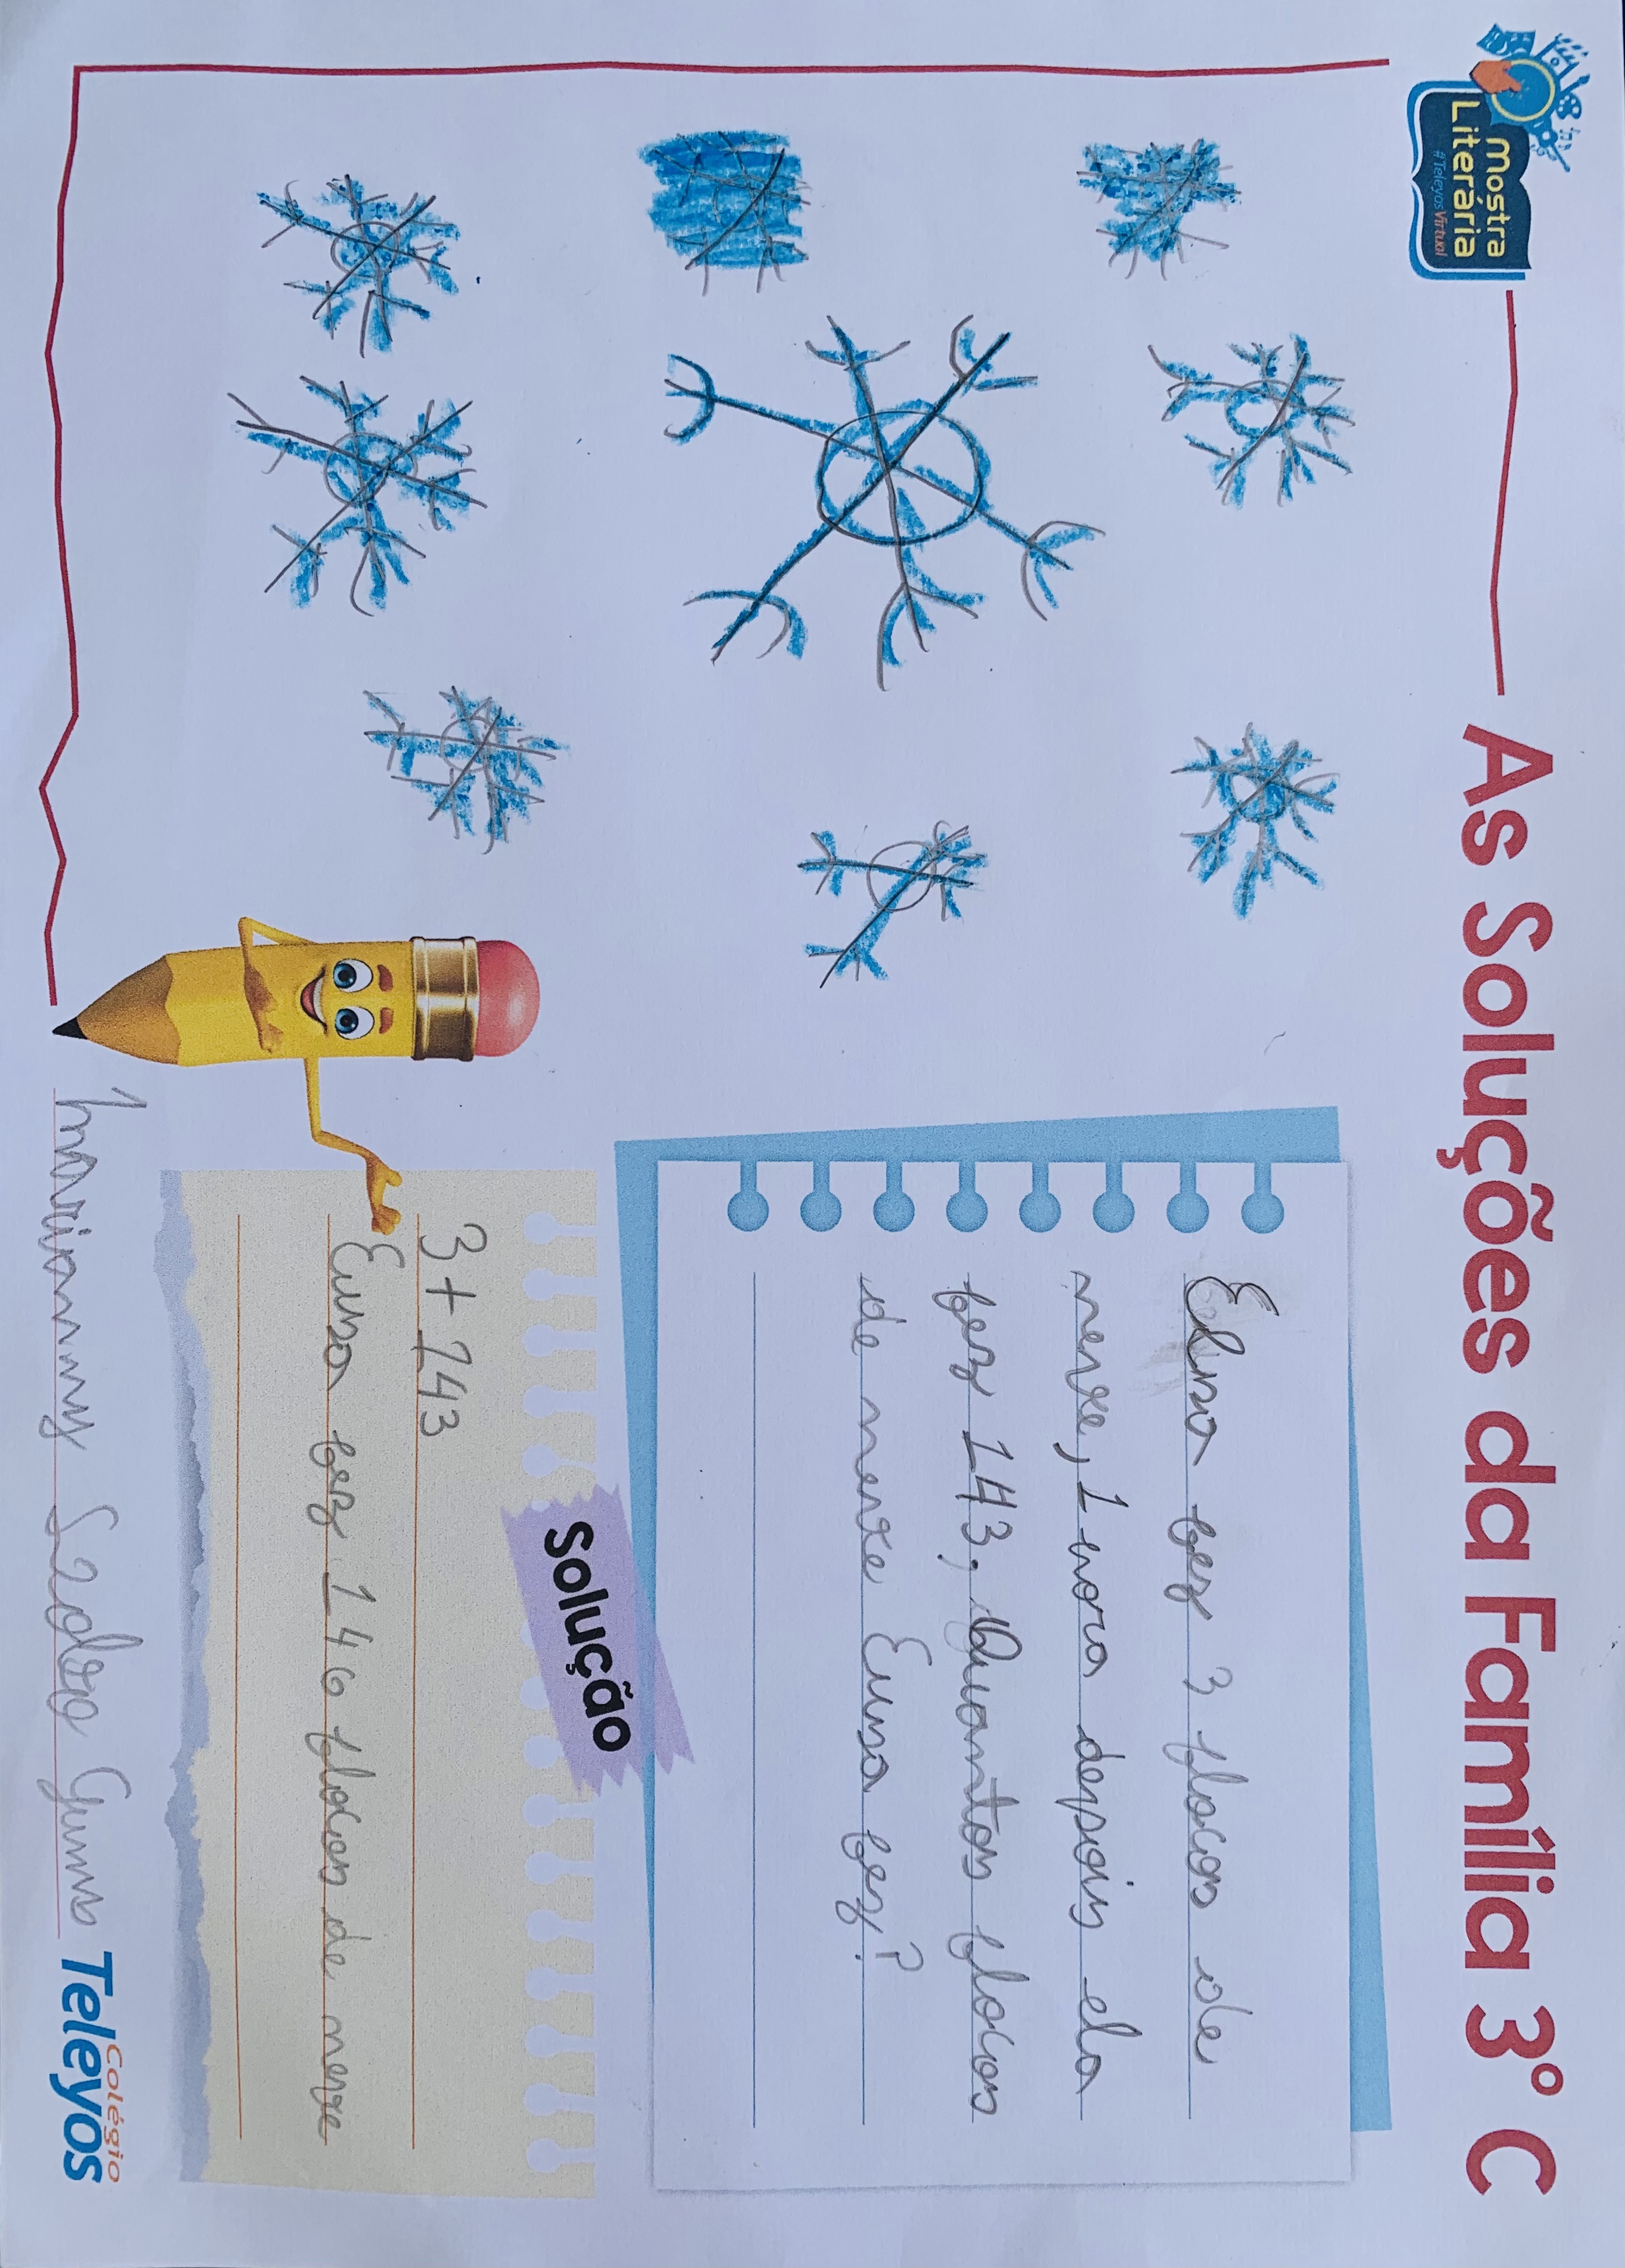 Mostra
Literária
#TeleyosVirtual
As Soluções da Família 3º C
Elsa fez 3 flocos de
neve, 1 hora depois ela
fez 143, Quantos flocos
de neve Eusa fez?
Solução
3 + 143
Eusa fez 146 flocos de neve
Colégio
Teleyos